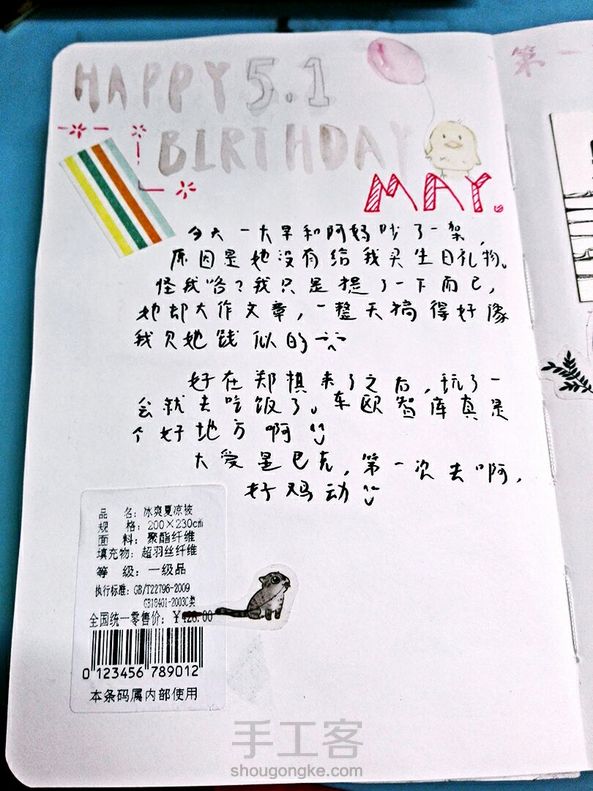 HAPPY 5.1
BIRTHDAY
MAY.
今天一大早和阿妈吵了一架,
原因是她没有给我买生日礼物。
怪我咯?我只是提了一下而已,
她却大作文章,一整天搞得好像
我欠她钱似的
好在郑棋来了之后,玩了一
会就去吃饭了。车欧智库真是
个好地方啊
大爱星巴克,第一次去啊,
好鸡动
第一
品 名:冰爽夏凉被
规 格:200×230cm
面 料:聚酯纤维
填充物:超羽丝纤维
等 级:一级品
执行标准:GB/T22796-2009
GB18401-2003C类
全国统一零售价:¥428.00
0 123456 789012
本条码属内部使用
手工客
shougongke.com